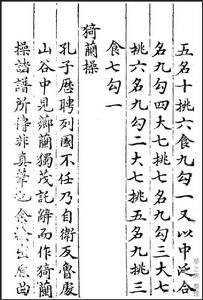 五名十挑六食九勾一又以中泛合
名九勾四大七挑七名九勾三大七
挑六名九勾二大七挑五名九挑三
食七勾一
猗蘭操
孔子歷聘列國不任乃自衛反魯
山谷中見薌蘭獨茂託辭而作猗蘭
操諸譜所傳非真
曲